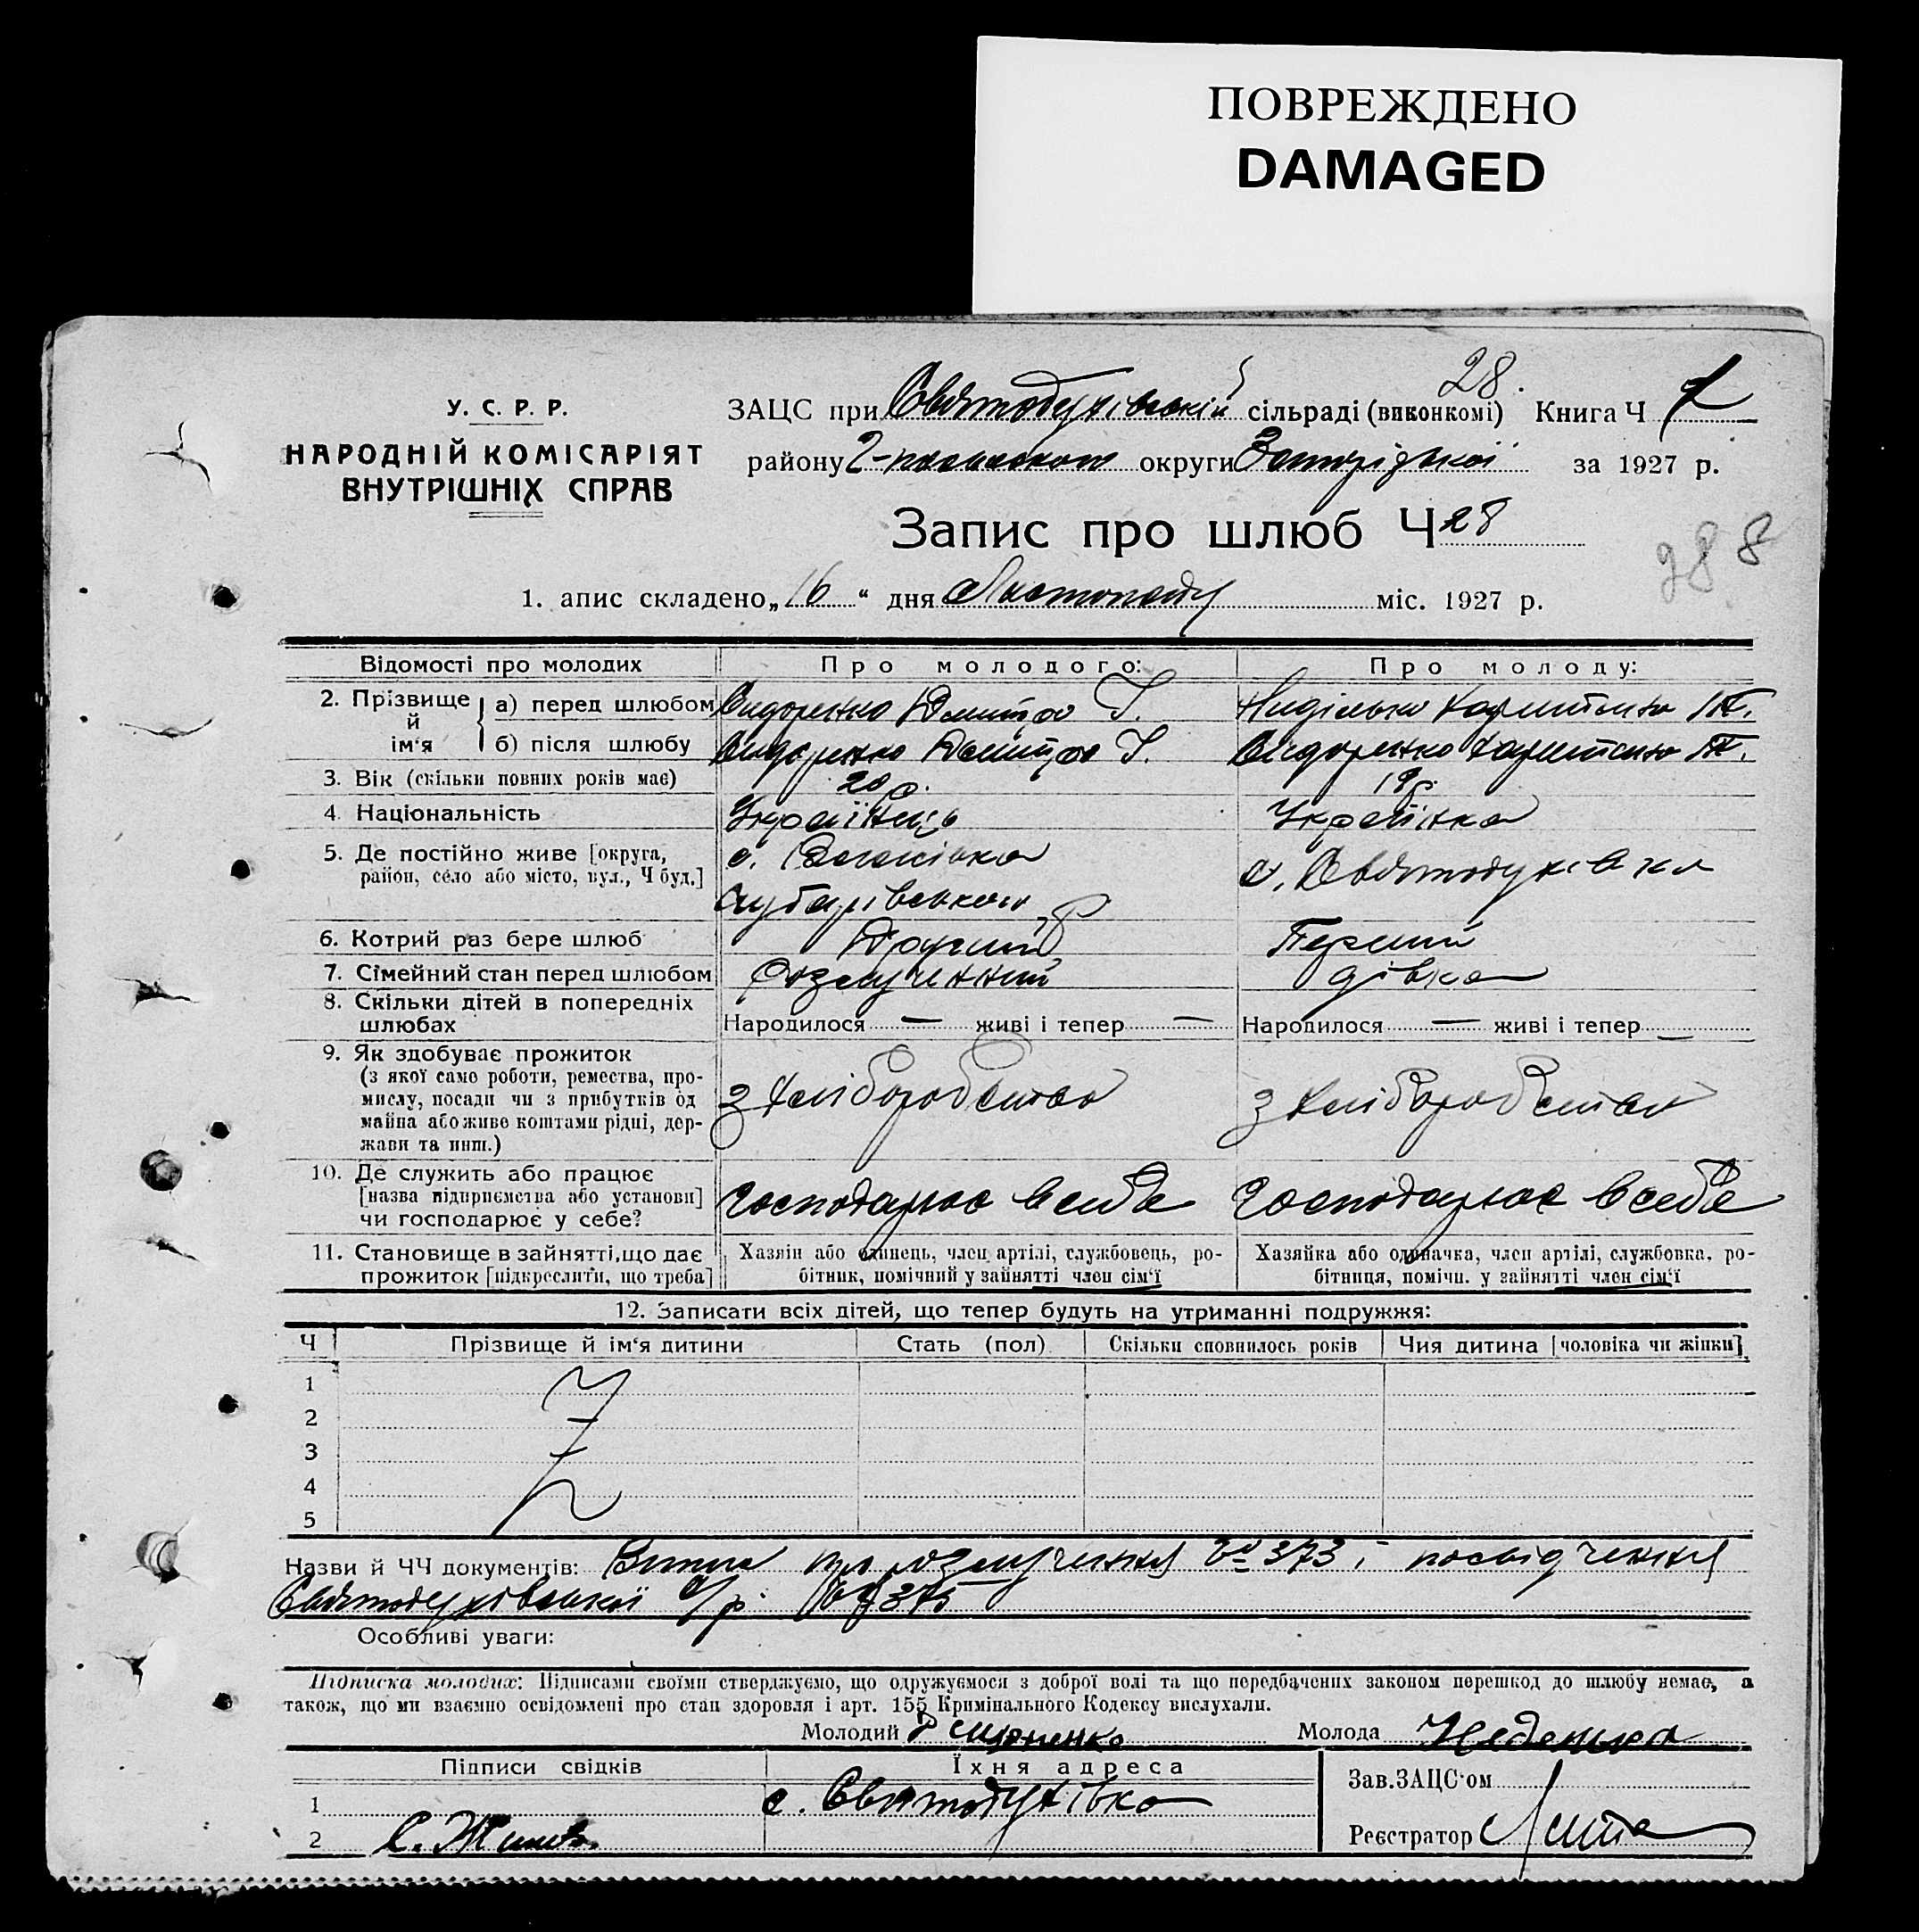 ПОВРЕЖДЕНО
DAMAGED
28.
У. С. Р. Р.
НАРОДНІЙ КОМІСАРІЯТ
ВНУТРІШНІХ СПРАВ
ЗАЦС при Святодухівській сільраді (виконкомі) Книга Ч
району округи Запорізької за 1927 р.
Запис про шлюб Ч 28
288
1. апис складено „16“ дня Листопаду міс. 1927 р.
Відомості про молодих
Про молодого:
Про молоду:
2. Прізвище й ім'я
а) перед шлюбом
Дмитро
б) після шлюбу
Дмитро
3. Вік (скільки повних років має)
20 р.
19 р.
4. Національність
Українець
Українка
5. Де постійно живе [округа,
район, село або місто, вул., Ч буд.]
с.
с. Святодухівка
6. Котрий раз бере шлюб
Другий
Перший
7. Сімейний стан перед шлюбом
Розлученний
дівка
8. Скільки дітей в попередніх
шлюбах
Народилося — живі і тепер —
Народилося — живі і тепер —
9. Як здобуває прожиток
(з якої само роботи, ремества, про-
мислу, посади чи з прибутків од
майна або живе коштами рідні, дер-
жави та инш.)
з хліборобства
з хліборобства
10. Де служить або працює
[назва підприємства або установи]
чи господарює у себе?
Господарює в себе
Господарює в себе
11. Становище в зайнятті, що дає
прожиток [підкреслити, що треба]
Хазяін або одинець, член артілі, службовець, ро-
бітник, помічний у зайнятті член сім'ї
Хазяйка або одиначка, член артілі, службовка, ро-
бітниця, помічн. у зайнятті член сім'ї
12. Записати всіх дітей, що тепер будуть на утриманні подружжя:
Ч
Прізвище й ім'я дитини
Стать (пол)
Скільки сповнилось років
Чия дитина [чоловіка чи жінки]
1
2
3
4
5
Назви й ЧЧ документів: Витяг про розлучення № 373 і посвідчення
Святодухівської с/р. № 375
Особливі уваги:
Підписка молодих: Підписами своїми стверджуємо, що одружуємося з доброї волі та що передбачених законом перешкод до шлюбу немає, а
також, що ми взаємно освідомлені про стан здоровля і арт. 155 Кримінального Кодексу вислухали.
Молодий
Молода
Підписи свідків
Їхня адреса
1
с. Святодухівка
2
Зав. ЗАЦС'ом
Реєстратор